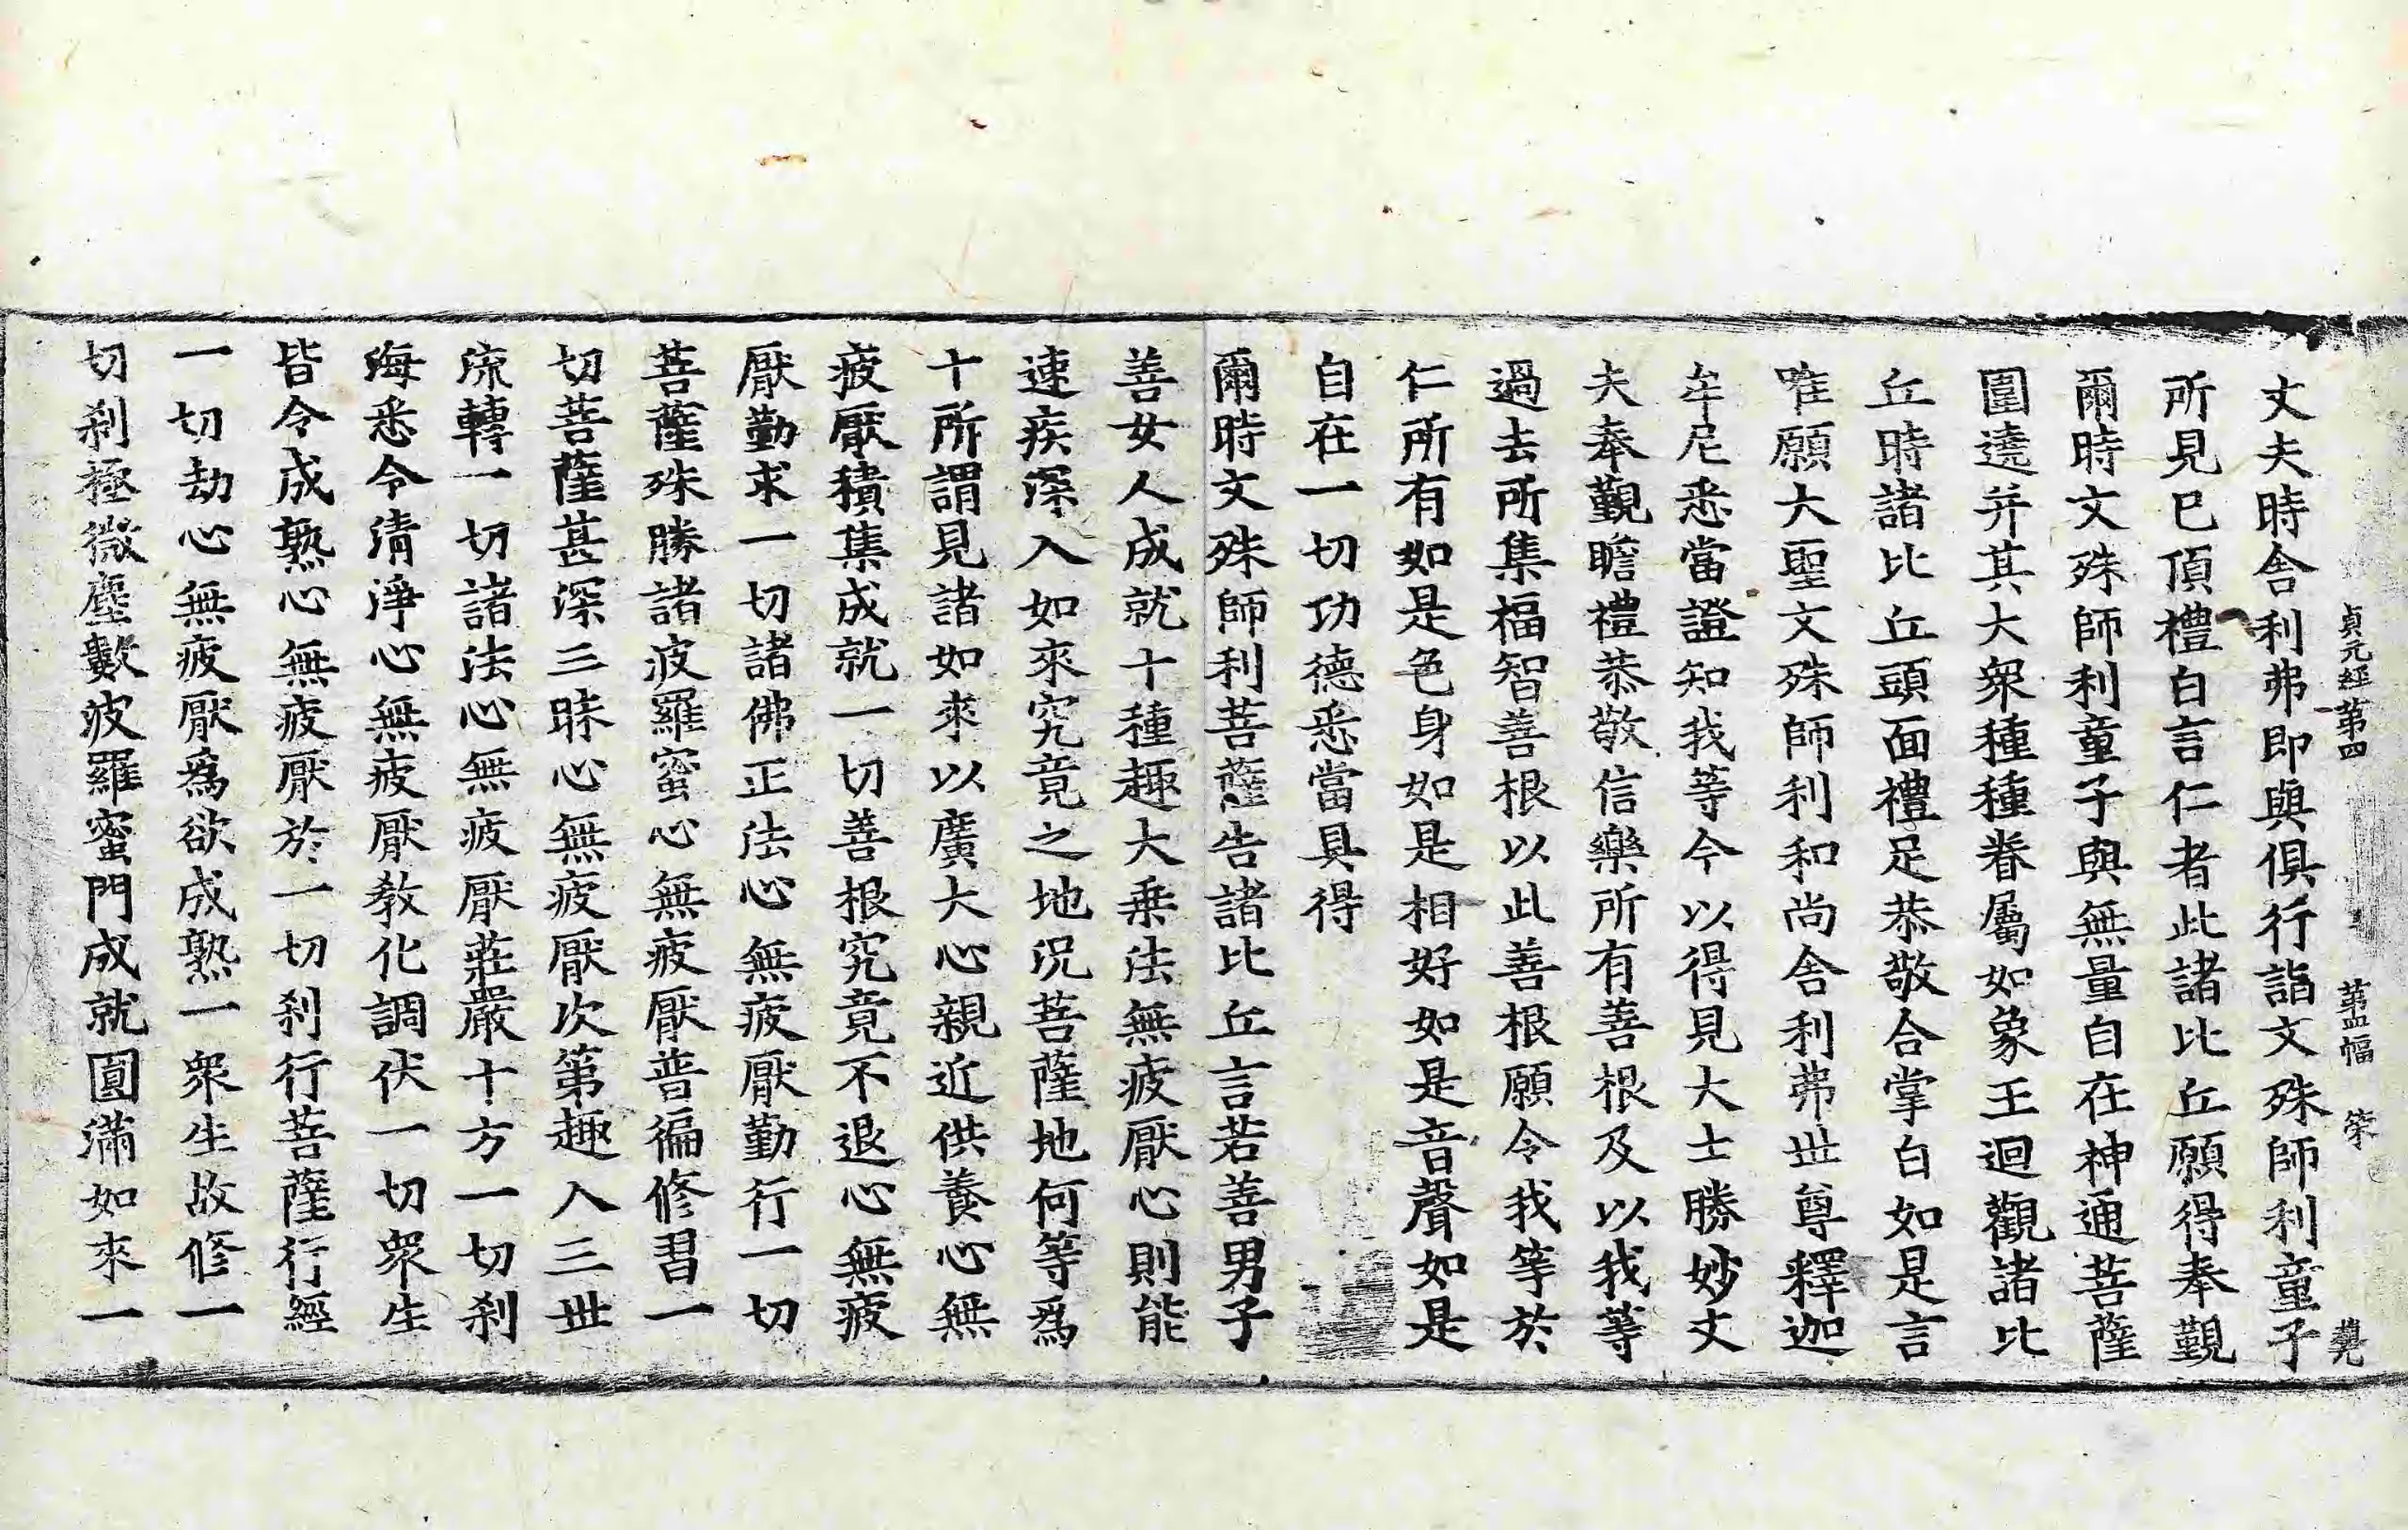 貞元經第四 第四幅 榮
丈夫時舍利弗即與俱行詣文殊師利童子
所見已頂禮白言仁者此諸比丘願得奉觀
爾時文殊師利童子與無量自在神通菩薩
圍遶并其大衆種種眷屬如象王迴觀諸比
丘時諸比丘頭面禮足恭敬合掌白如是言
唯願大聖文殊師利和尚舍利弗世尊釋迦
牟尼悉當證知我等今以得見大士勝妙丈
夫奉覲瞻禮恭敬信樂所有善根及以我等
過去所集福智善根以此善根願令我等於
仁所有如是色身如是相好如是音聲如是
自在一切功德悉當具得
爾時文殊師利菩薩告諸比丘言若善男子
善女人成就十種趣大乗法無疲厭心則能
速疾深入如來究竟之地况菩薩地何等爲
十所謂見諸如來以廣大心親近供養心無
疲厭積集成就一切善根究竟不退心無疲
厭勤求一切諸佛正法心無疲厭勤行一切
菩薩殊勝諸波羅蜜心無疲厭普徧修習一
切菩薩甚深三昧心無疲厭次第趣入三世
流轉一切諸法心無疲厭莊嚴十方一切刹
海悉令清淨心無疲厭教化調伏一切衆生
皆令成熟心無疲厭於一切刹行菩薩行經
一切劫心無疲厭爲欲成熟一衆生故修一
切刹極微塵數波羅蜜門成就圓滿如來一